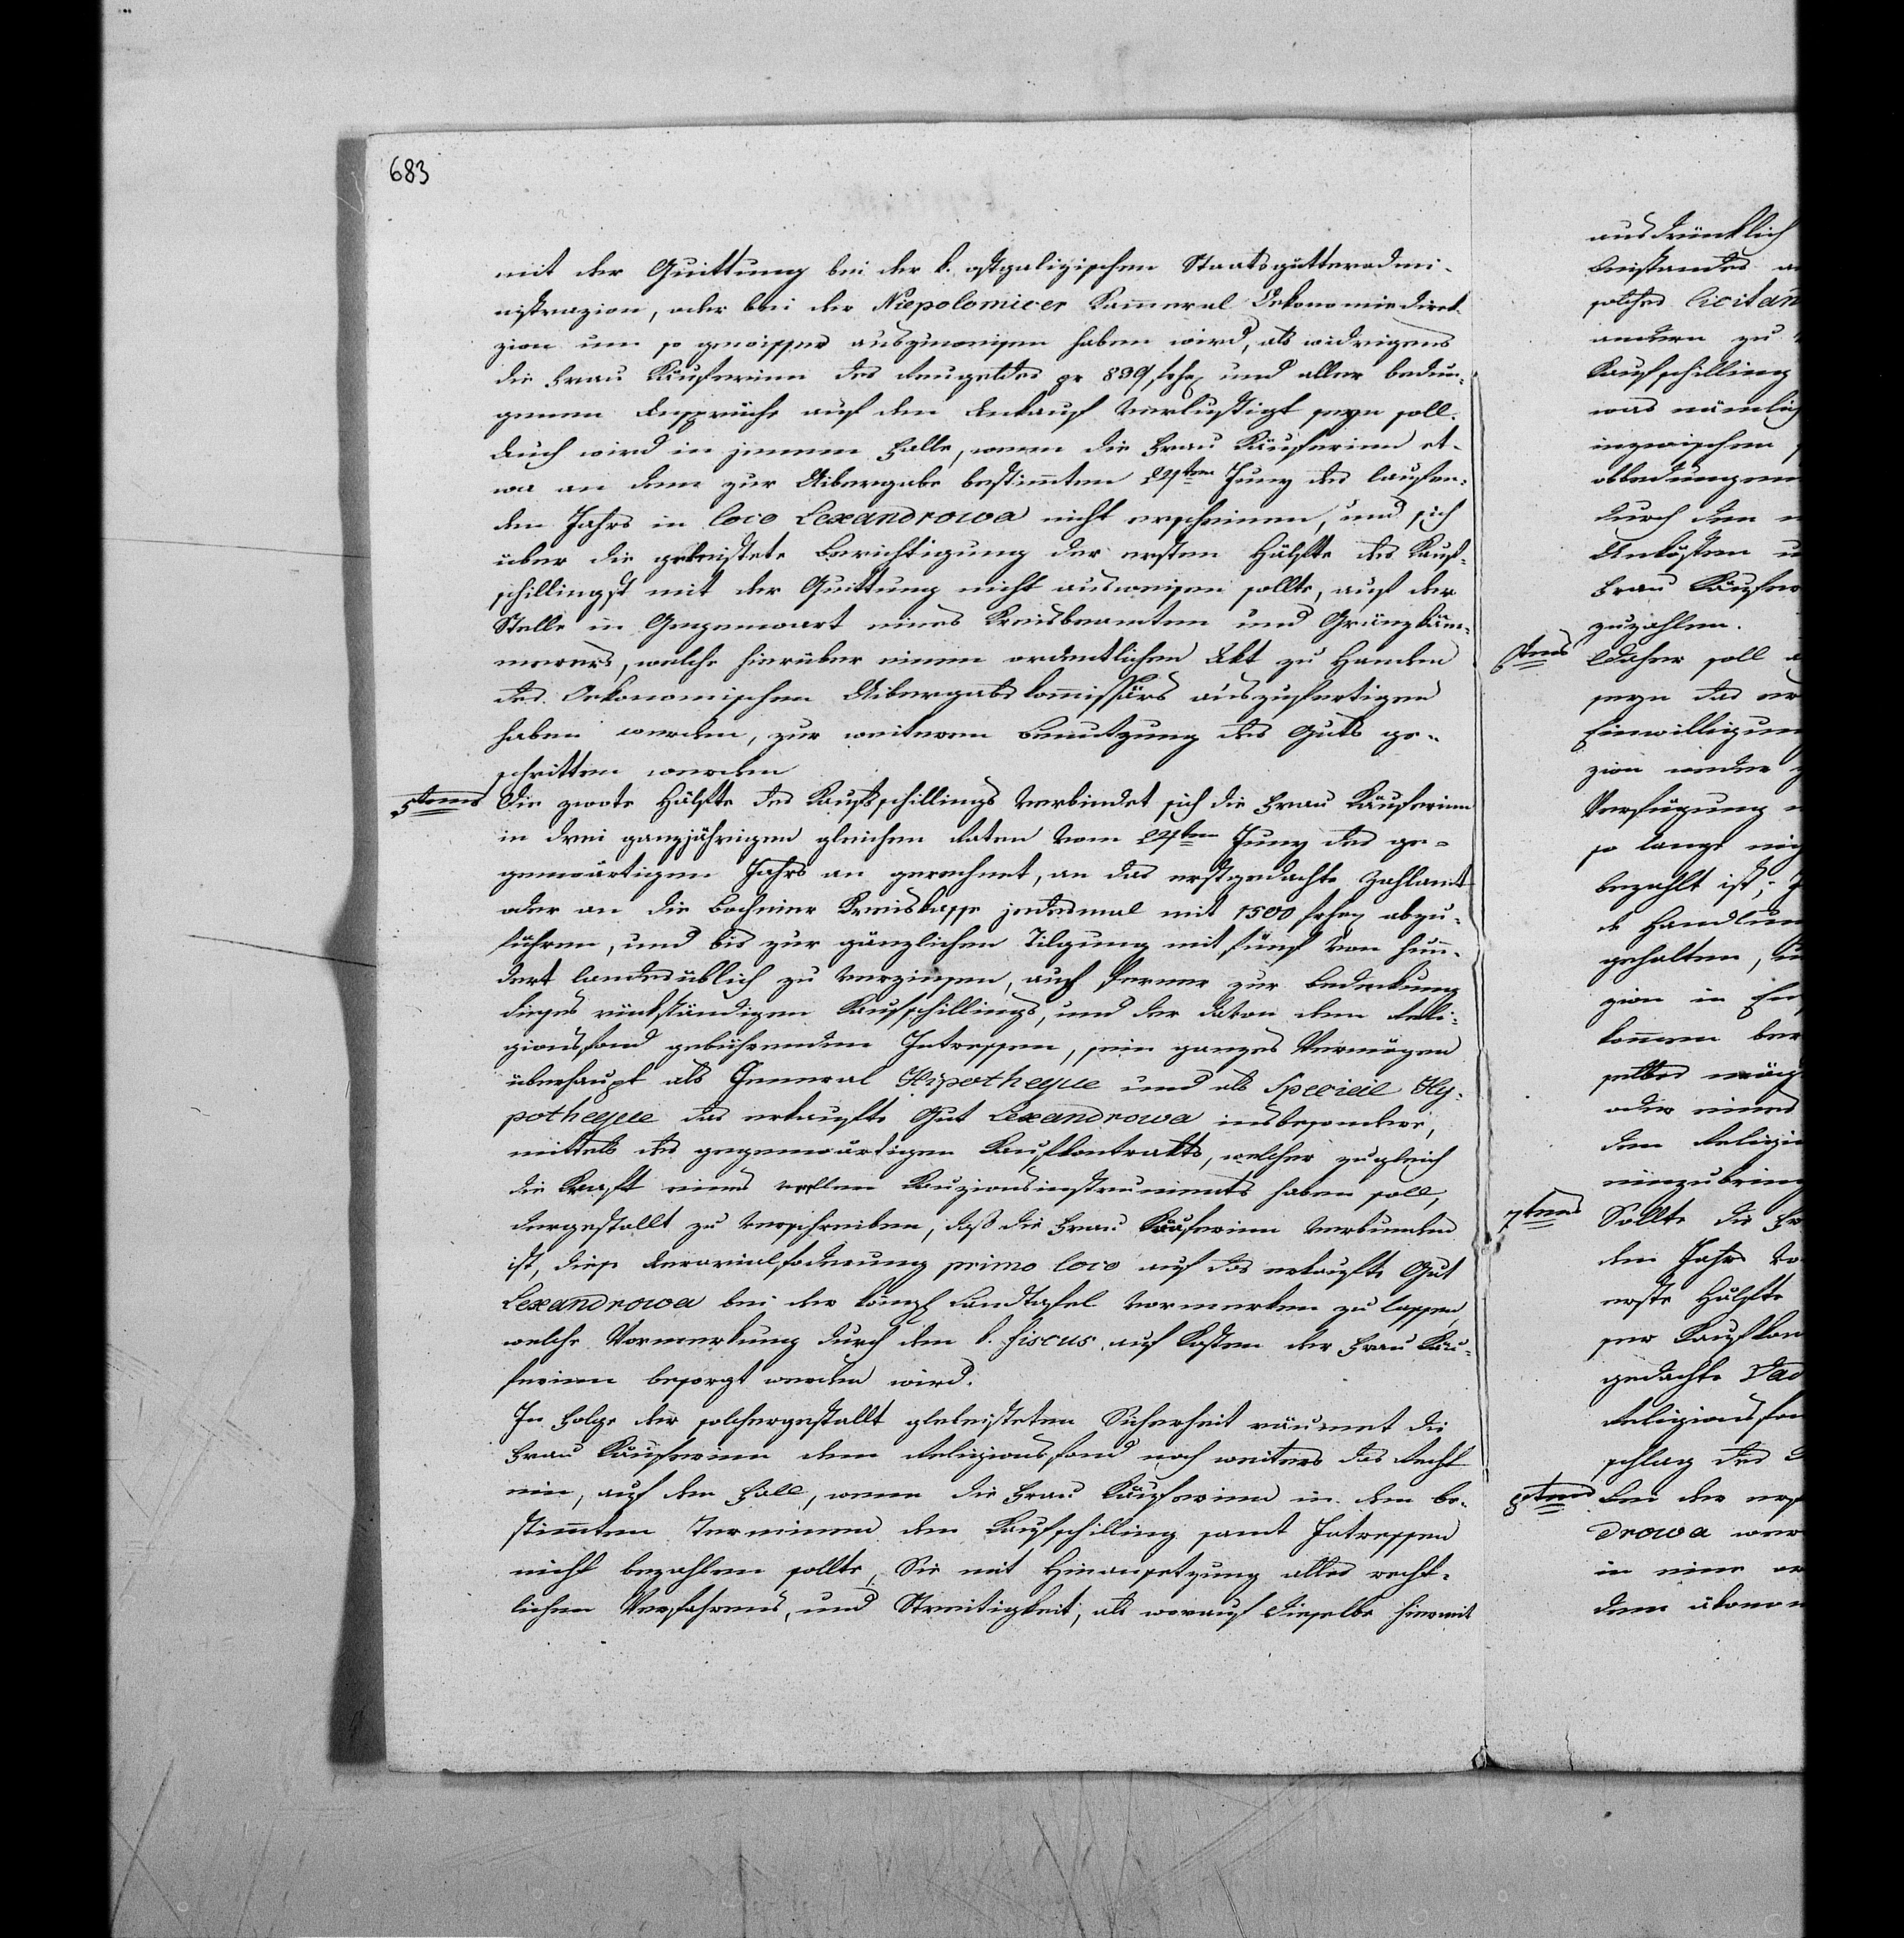 683
mit der Quittung bei der k. ostgalizischen Staatsgütteradmi-
nistrazion, oder bei der Niepolomicer Kammeral Oekonomiedirek-
zion um so gewisser auszuweisen haben wird, als widrigens
die Frau Käuferinn des Reugeldes pr 899 und aller bedun-
genen Ansprüche auf den Ankauf verlustigt seyn soll.
Auch wird in jenem Falle, wenn die Frau Käuferinn et-
wa an dem zur Uibergabe bestimmten 24ten Juny des laufen-
den Jahrs in loco Lexandrowa nicht erscheinen, und sich
über die geleistete Berichtigung der ersten Hälfte des Kauf-
schillings mit der Quittung nicht ausweisen sollte, auf der
Stelle in Gegenwart eines Kreisbeamten und Gränzkäm-
merers, welche hierüber einen ordentlichen Akt zu Handen
des Oekonomischen Uibergabskommissärs auszufertigen
haben werden, zur weiteren Benutzung des Guts ge-
schritten werden
5tens Die zwote Hälfte des Kaufschillings verbindet sich die Frau Käuferinn
in drei ganzjährigen gleichen Raten vom 24ten Juny des ge-
genwärtigen Jahrs an gerechnet, an das erstgedachte Zahlamt
oder an die Bochnier Kreiskasse jedesmal mit 1500 abzu-
führen, und bis zur gänzlichen Tilgung mit fünf von hun-
dert landesüblich zu verzinsen, auch ferner zur Bedeckung
dieses rückständigen Kaufschillings, und der davon dem Reli-
gionsfond gebührenden Intressen, sein ganzes Vermögen
überhaupt als General Hipotheque und als Speciele Hy-
potheque das erkaufte Gut Lexandrowa insbesondere,
mittels des gegenwärtigen Kaufkontrakts, welcher zugleich
die Kraft eines vollen Kauzionsinstruments haben soll,
dergestallt zu verschreiben, daß die Frau Käuferinn verbunden
ist, diese Aerarialfoderung primo loco auf das erkaufte Gut
Lexandrowa bei der königl Landtafel vormerken zu lassen,
welche Vormerkung durch den k. Fiscus auf Kosten der Frau Käu-
ferinn besorgt werden wird.
In Folge der solchergestallt geleisteten Sicherheit räumet die
Frau Käuferinn dem Religionsfond noch weiters das Recht
ein, auf den Fall, wenn die Frau Käuferinn in den be-
stimmten Terminen den Kaufschilling samt Intressen
nicht bezahlen sollte, Sie mit Hinansetzung alles recht-
lichen Verfahrens, und Streitigkeit, als worauf dieselbe hiermit
ausdrücklich
Beistandes
solches licitan
andern zu
Kaufschilling
was nämlich
inzwischen
durch den
Unkösten
Frau Käufer
zuzahlen.
6tens Daher soll
seyn das
Einwilligun
zion weder
Verfügung
so lange
bezahlt ist,
Handlun
gehalten,
zion in
kommen
selbes
oder eines
dem Religi
einzubrin
7tens Sollte die Fr
den Jahrs
erste Hälfte
ser Kaufkon
gedachte Vad
Religionsfon
schlag des
8tens Bei der
drowa
in eine
dem ökono